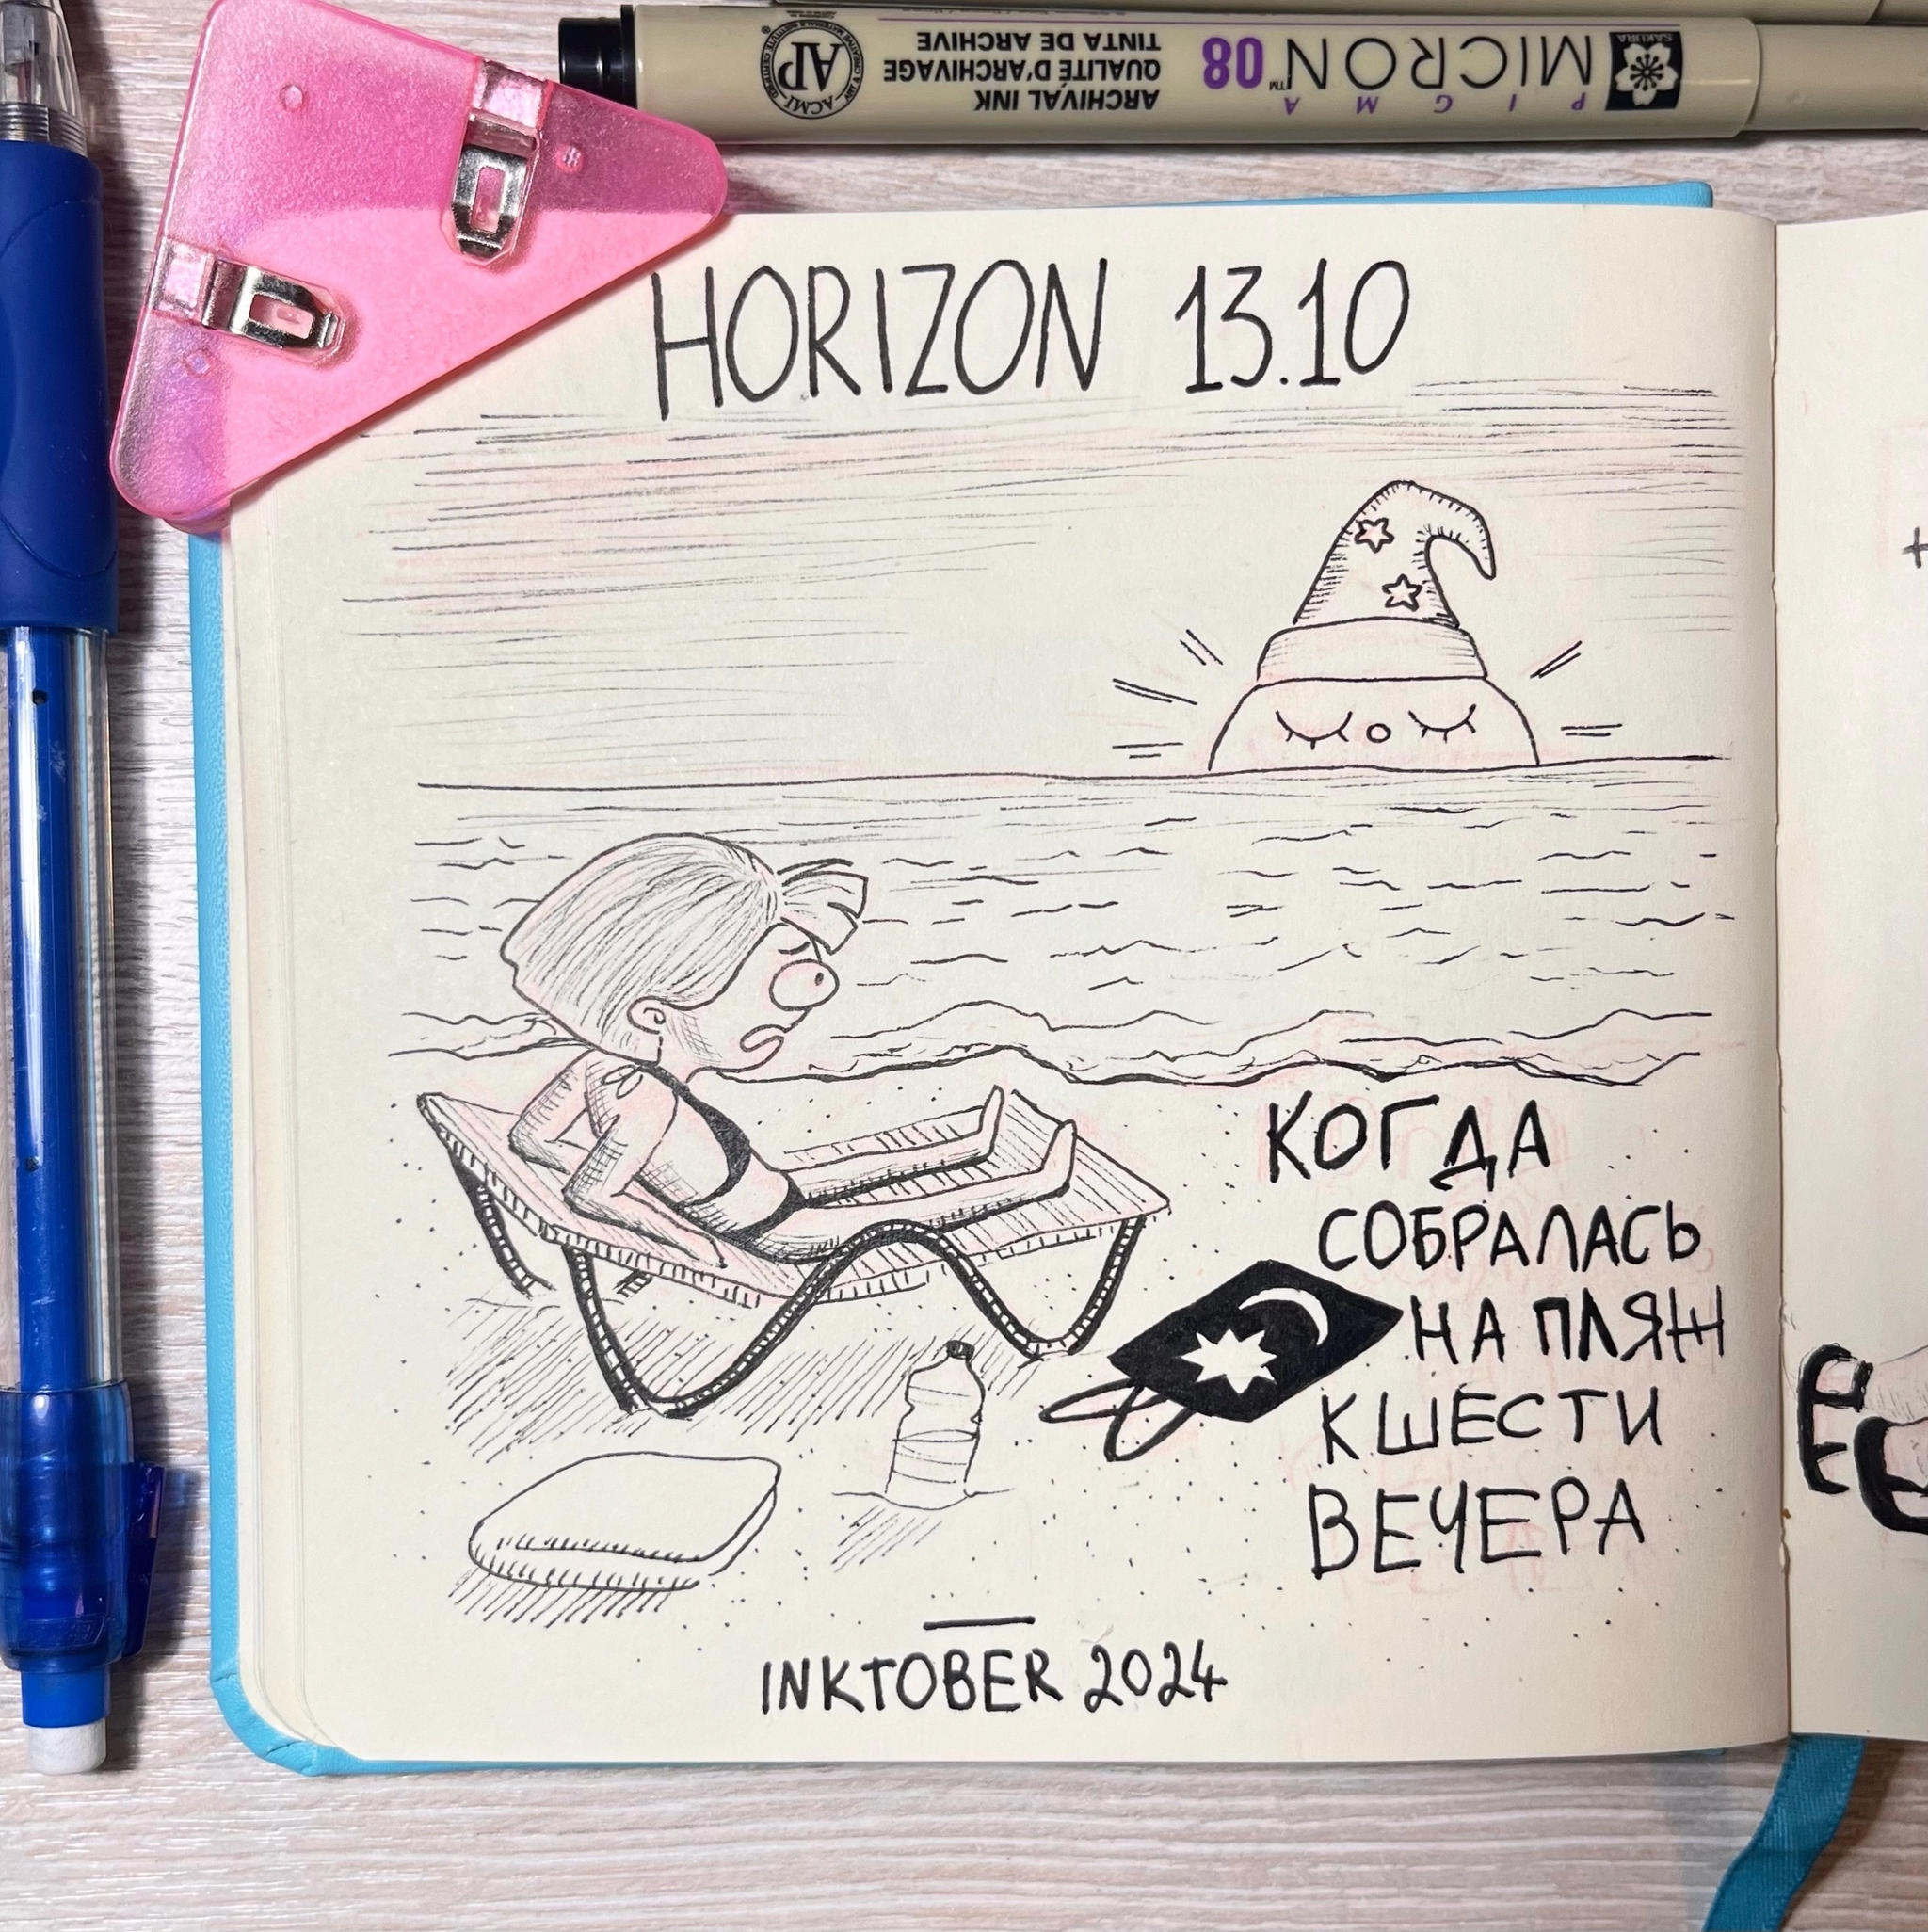 PIGMA
MICRON™ 08
ARCHIVAL INK
QUALITÉ D'ARCHIVAGE
TINTA DE ARCHIVE
SAKURA
AP
ACMI
HORIZON 13.10
КОГДА
СОБРАЛАСЬ
НА ПЛЯЖ
К ШЕСТИ
ВЕЧЕРА
INKTOBER 2024